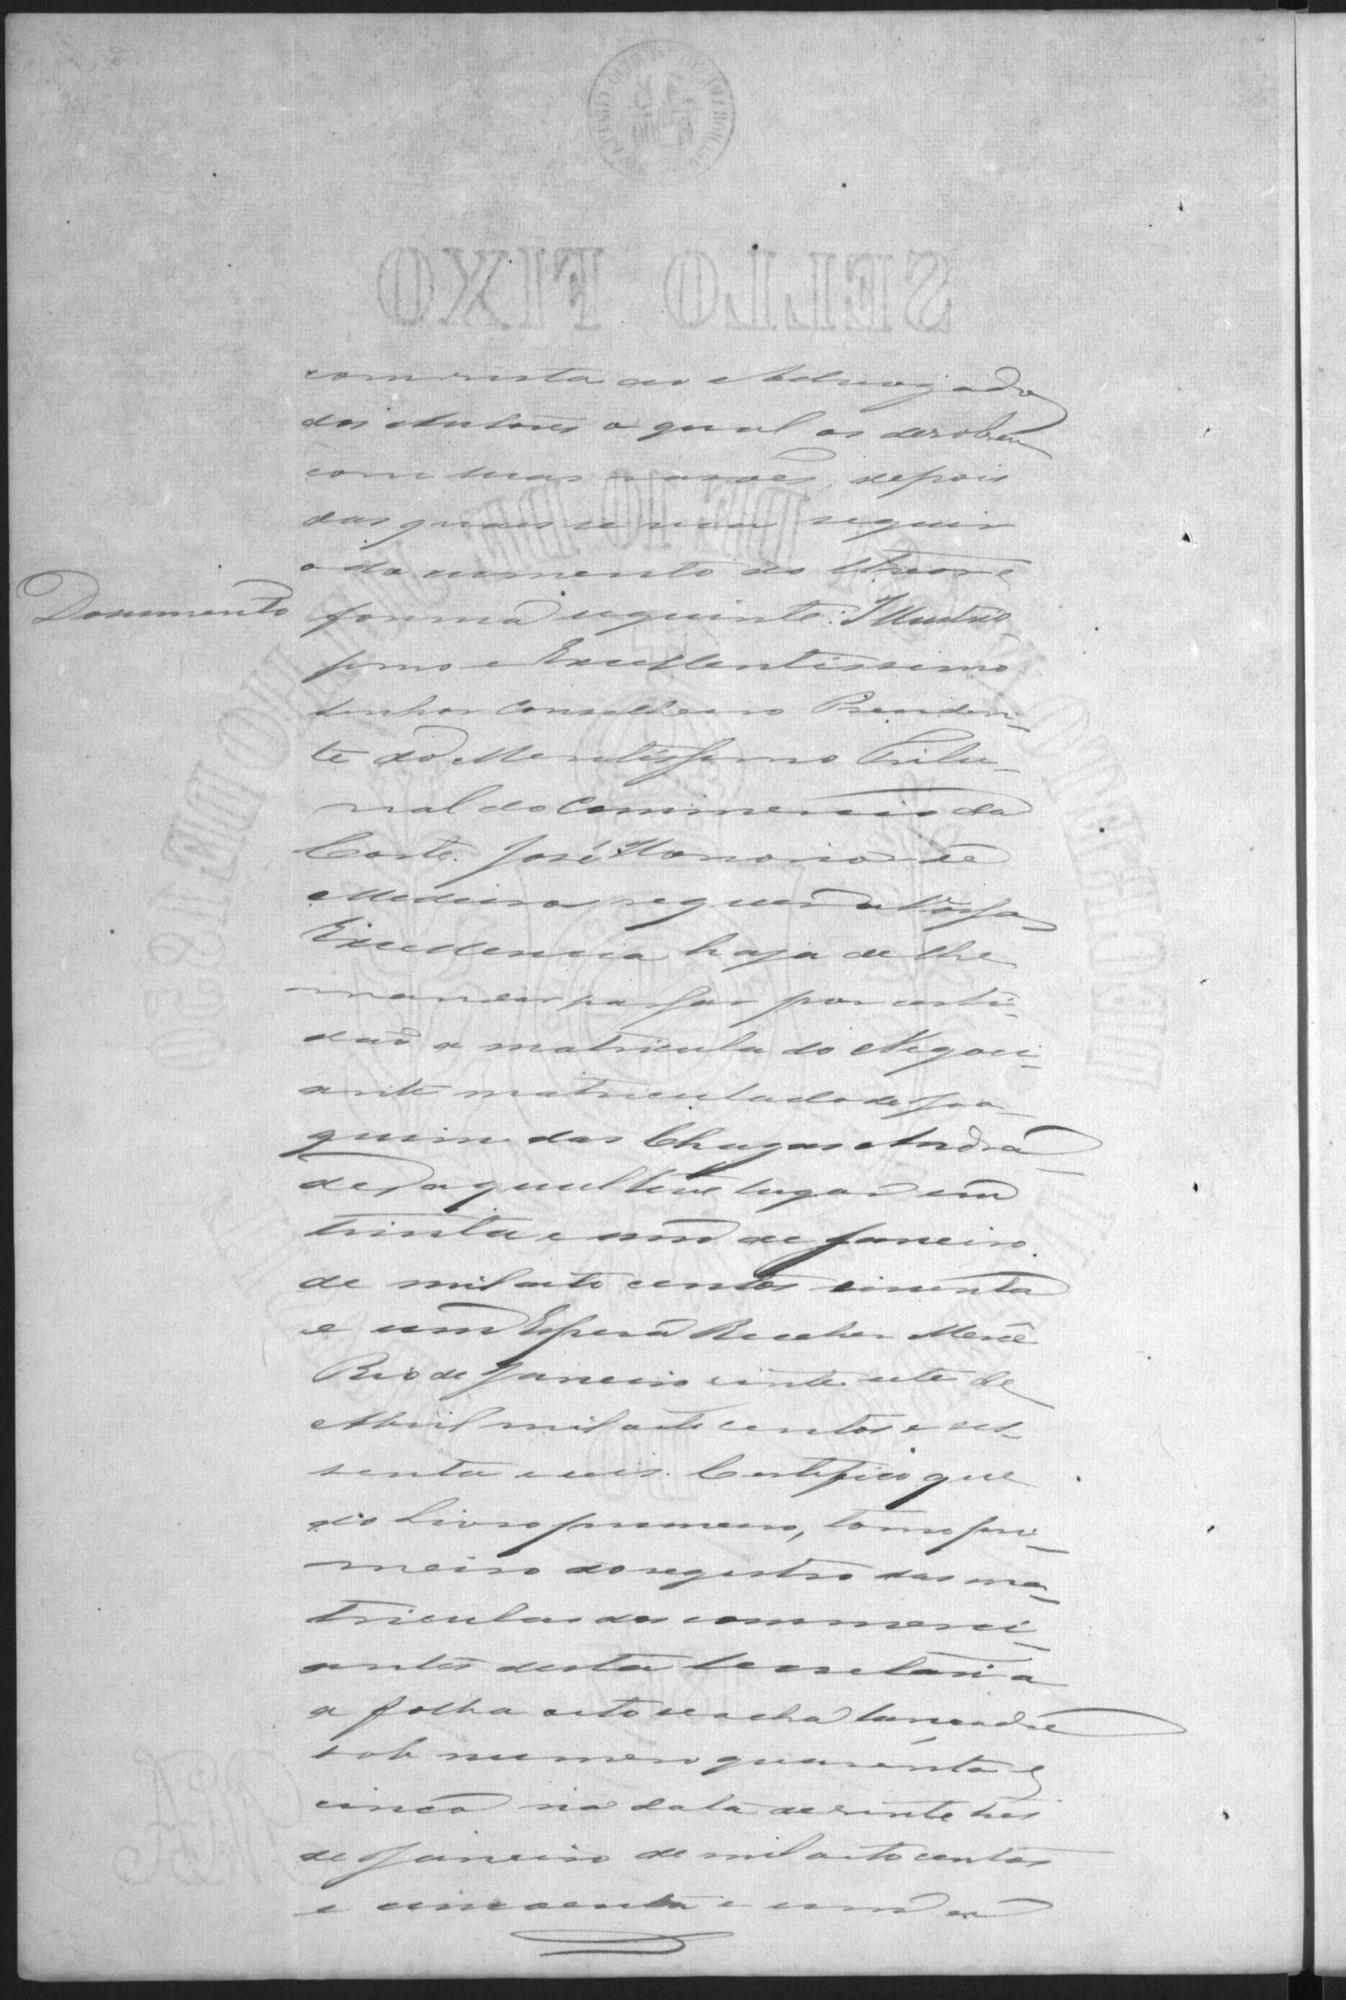 SELLO FIXO
com vista ao Advogado
dos Autores o qual os devolveu
com suas rasões, depois
das quaes se via seguir
o documento do theor e
Documento
forma seguinte: Illustris
simo e Excellentissimo
Senhor Conselheiro Presiden-
te do Meretissimo Tribu-
nal do Commercio da
Corte. José Honorio de
Medeiros requer a Vossa
Excellencia haja de lhe
mandar passar por certi-
dão a matricula do Negoci-
ante matriculado de Joa-
quim das Chagas Andra-
de, a qual teve lugar em
trinta e um de Janeiro
de mil oito centos cincoenta
e um Espera Receber Mercê
Rio de Janeiro vinte sete de
Abril mil oito centos e ses-
senta e seis. Certifico que
do Livro primeiro, tomo pri-
meiro do registro das ma-
triculas dos commerci-
antes desta Secretaria
a folha oito se acha lançada
sob numero quarenta e
cinco na data de vinte tres
de Janeiro de mil oito centos
e cincoenta e um a